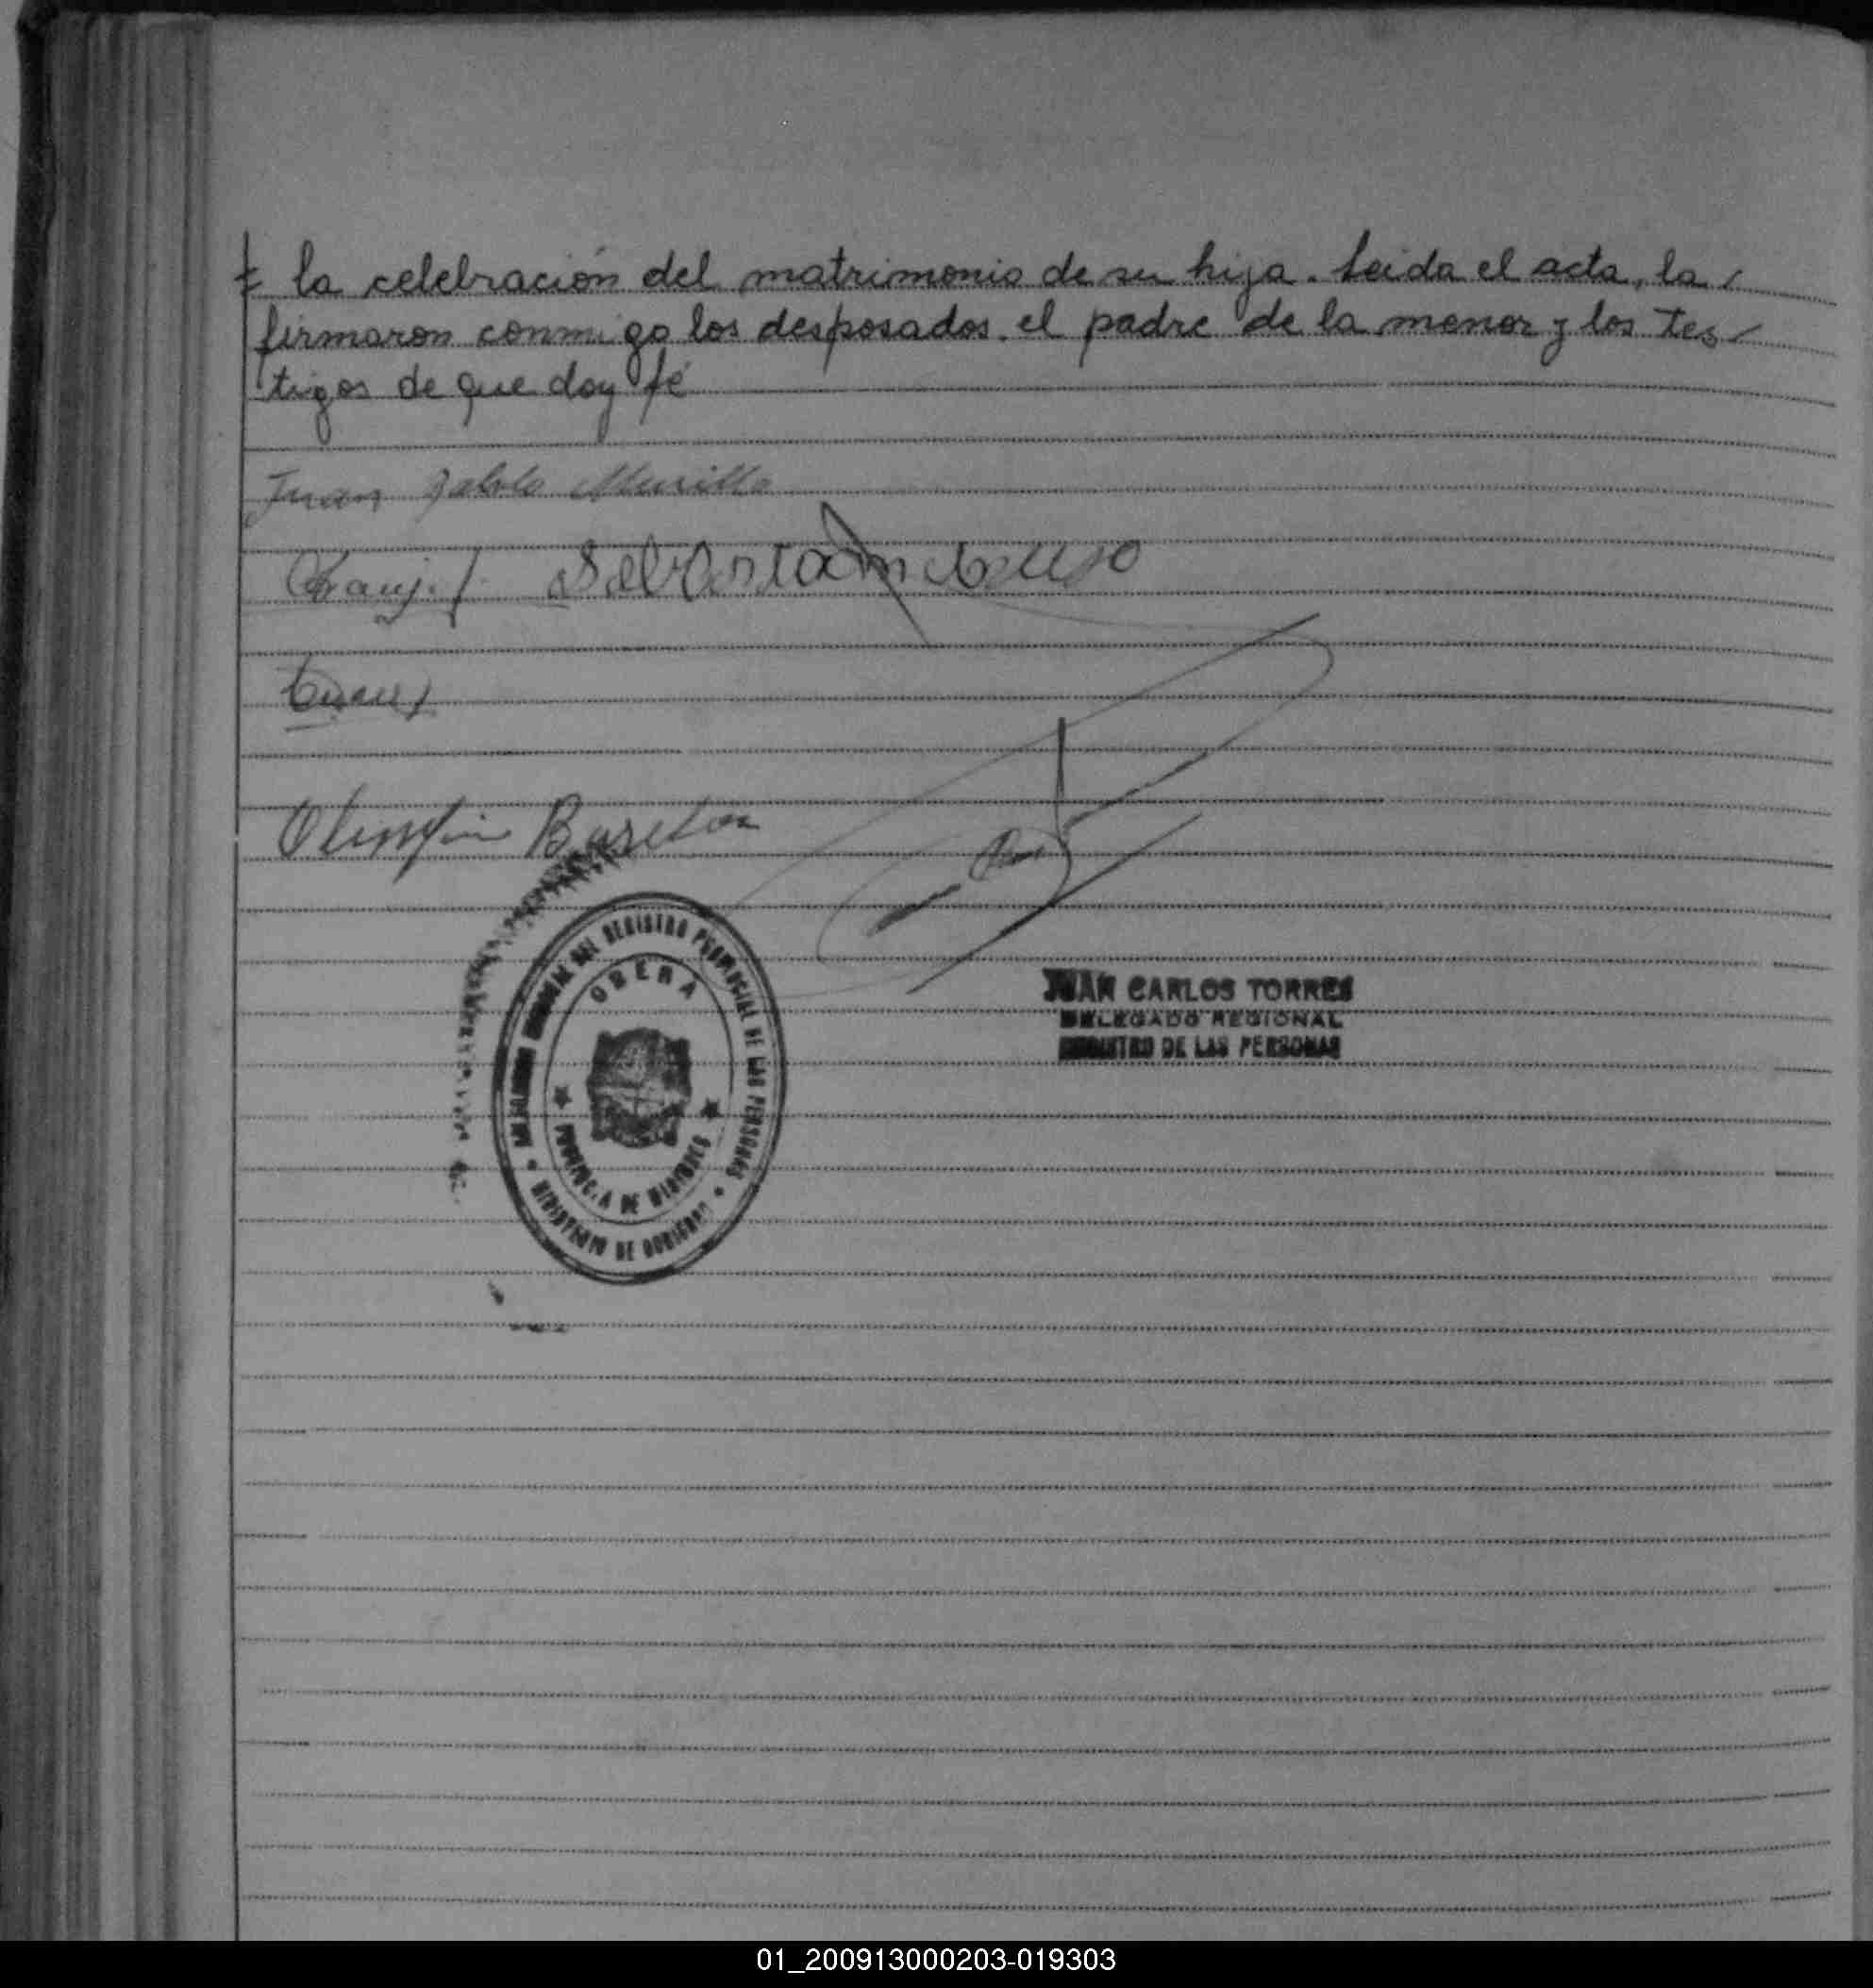 la celebración del matrimonio de su hija. Leida el acta, la
firmaron conmigo los desposados, el padre de la menor y los tes
tigos de que doy fé
Juan Pablo Murillo
Olimpia
OBERA
PROVINCIA DE MISIONES
REGISTRO PROVINCIAL DE LAS PERSONAS
MINISTERIO DE GOBIERNO
JUAN CARLOS TORRES
DELEGADO REGIONAL
REGISTRO DE LAS PERSONAS
01_200913000203-019303